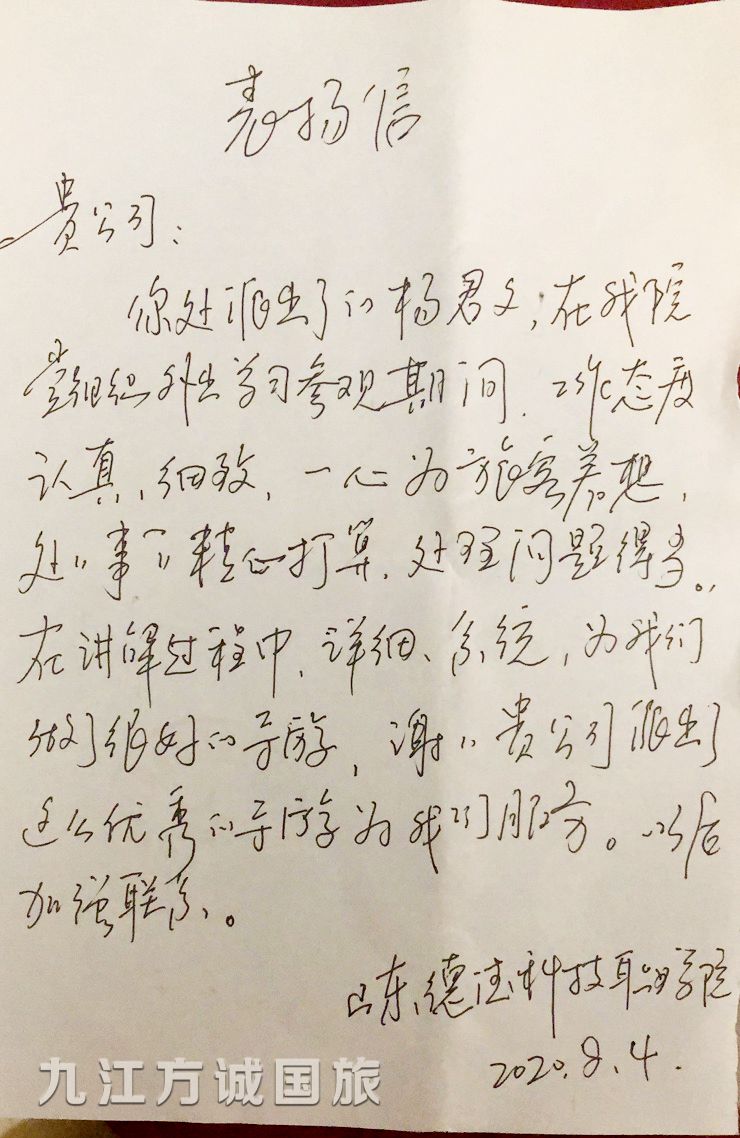 表扬信
贵公司：
你处派出了的杨君文，在我院
党组织外出学习参观期间，工作态度
认真、细致，一心为旅客着想，
处〃事〃精心打算，处理问题得当。
在讲解过程中，详细、系统，为我们
做了很好的导游，谢〃贵公司派出了
这么优秀的导游为我们服务。以后
加强联系。
山东德科技职业学院
2020.8.4.
九江方诚国旅